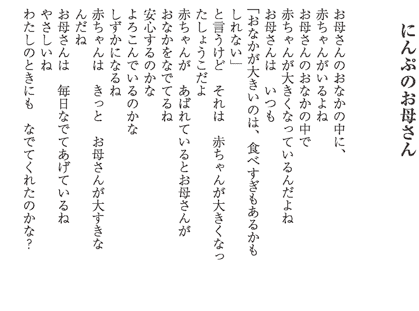 にんぷのお母さん
お母さんのおなかの中に、
赤ちゃんがいるよね
お母さんのおなかの中で
赤ちゃんが大きくなっているんだよね
お母さんは　いつも
「おなかが大きいのは、食べすぎもあるかも
しれない」
と言うけど　それは　赤ちゃんが大きくなっ
たしょうこだよ
赤ちゃんが　あばれているとお母さんが
おなかをなでてるね
安心するのかな
よろこんでいるのかな
しずかになるね
赤ちゃんは　きっと　お母さんが大すきな
んだね
お母さんは　毎日なでてあげているね
やさしいね
わたしのときにも　なでてくれたのかな？